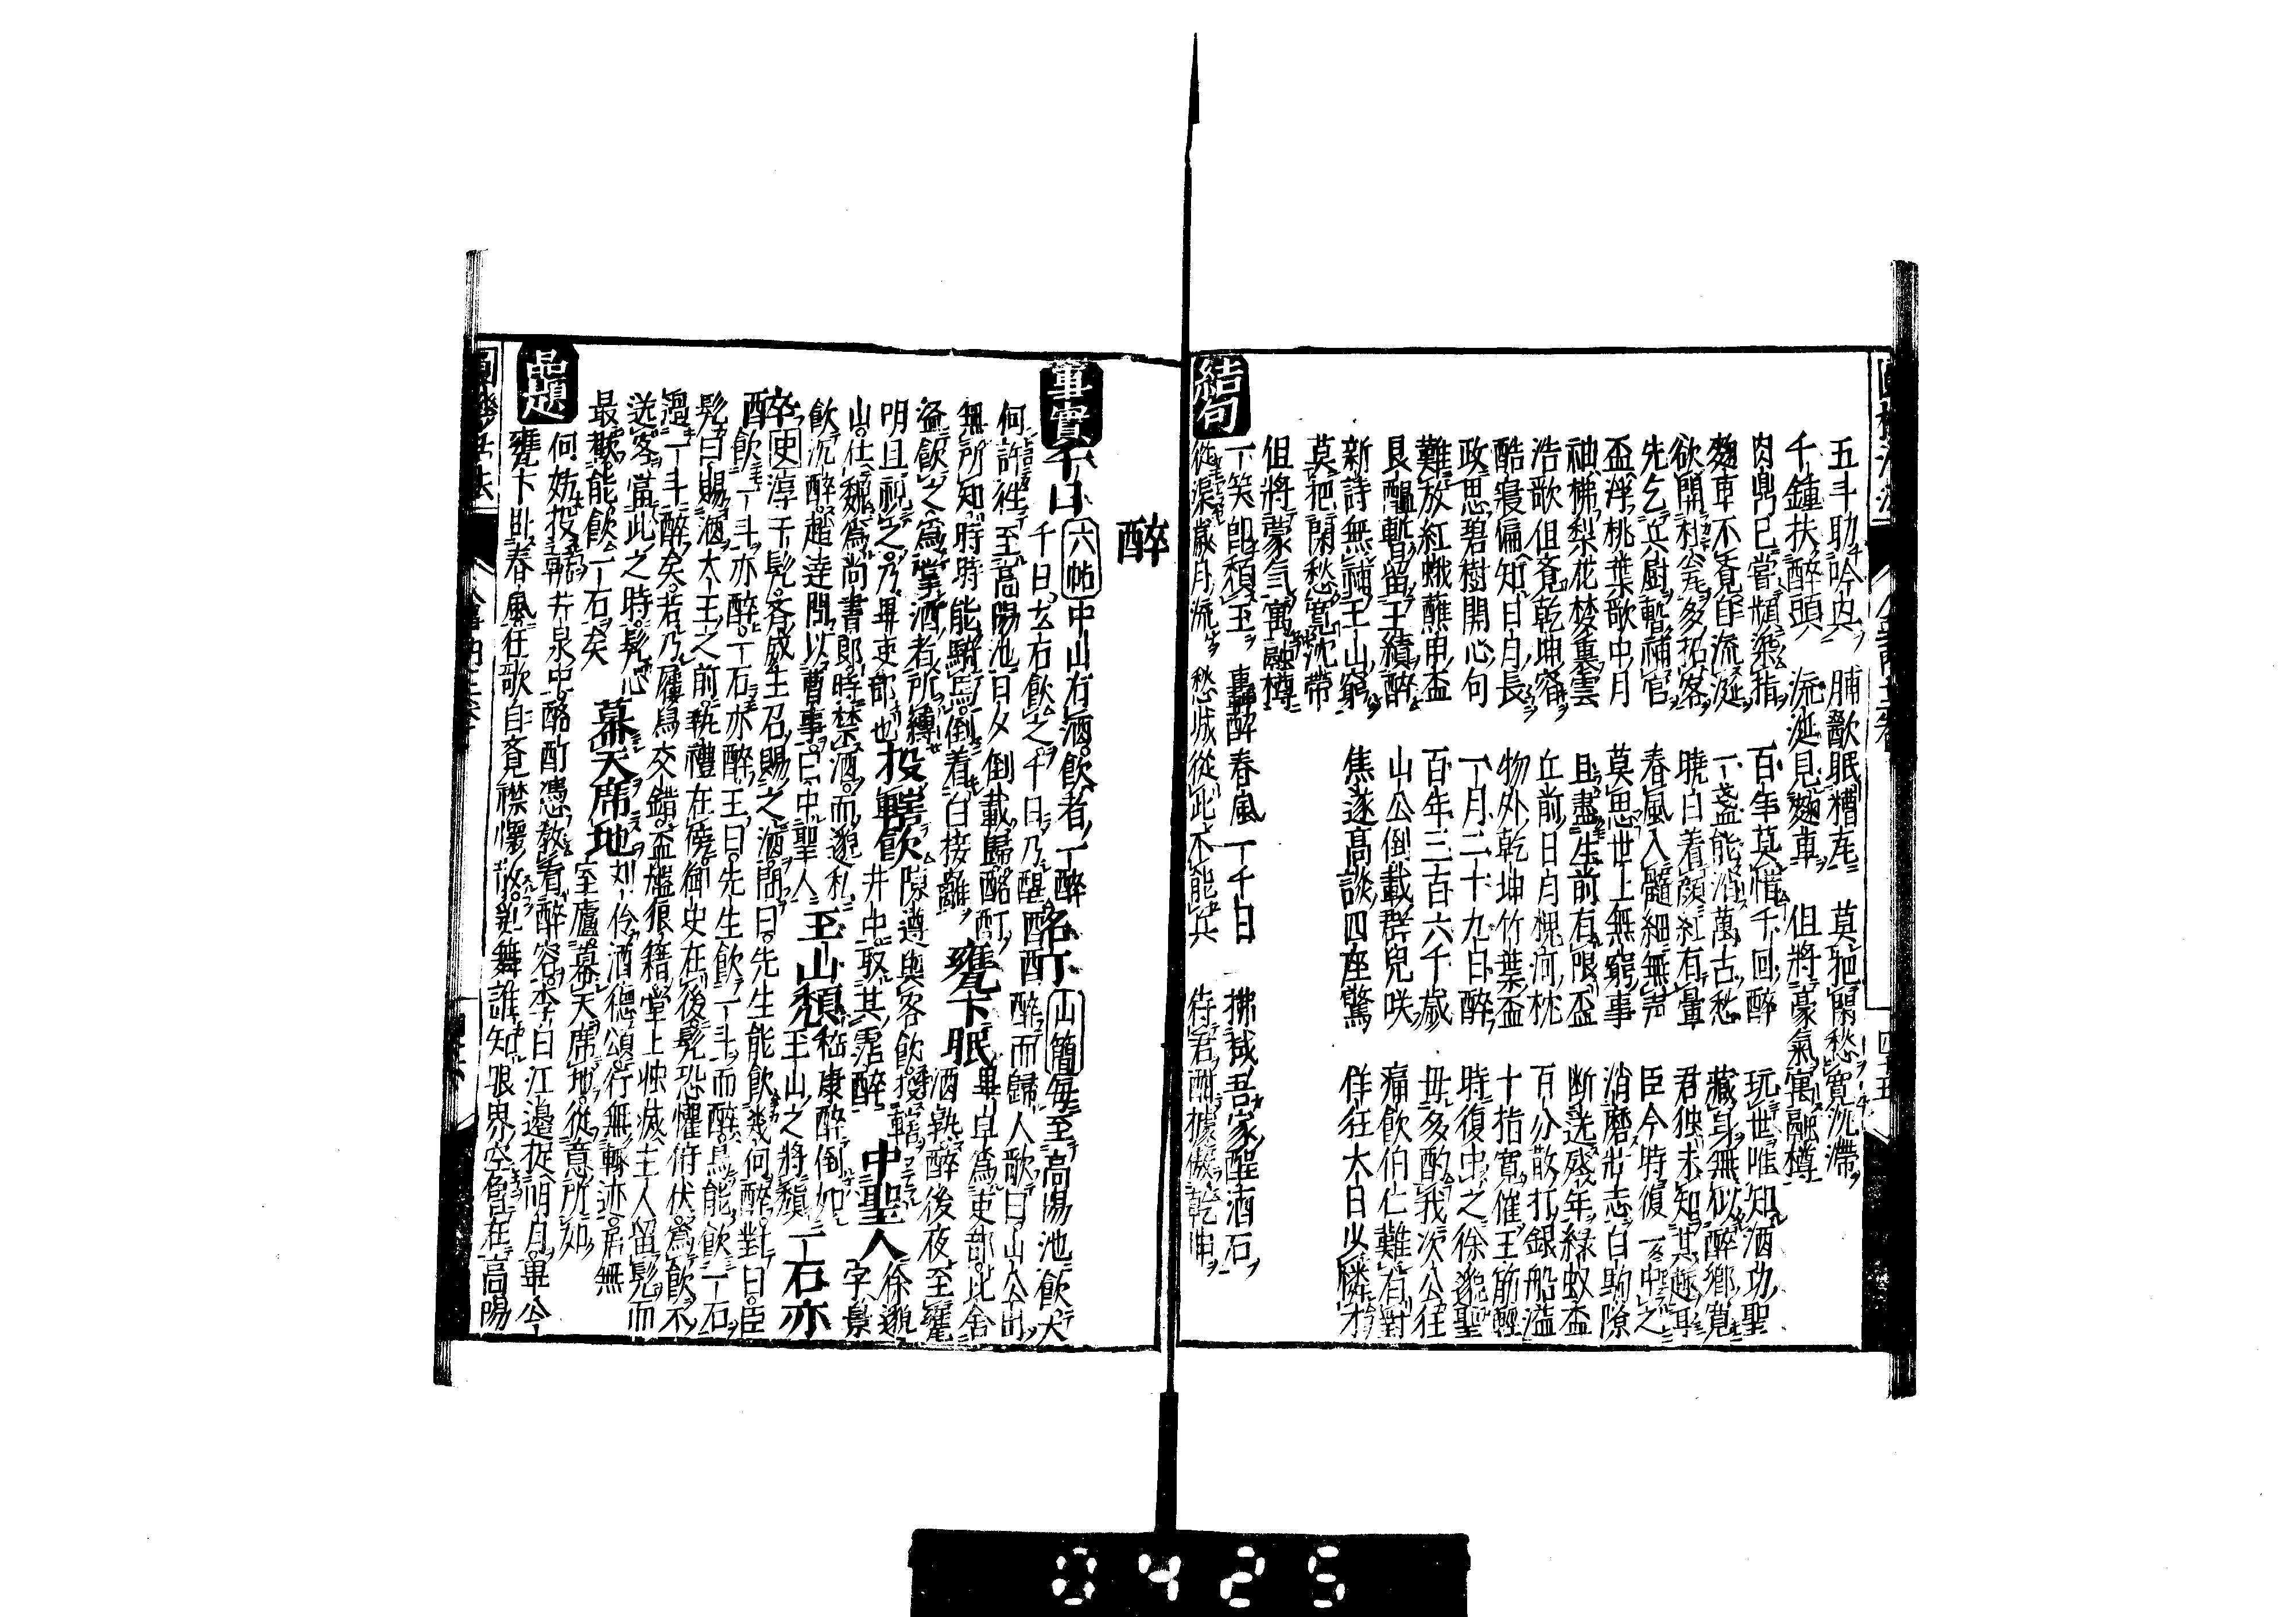 五斗助吟興　脯歠眠糟座　莫把閑愁寛沉滯
千鐘扶醉頭　流涎見麹車　但將豪氣寓融樽
肉鼎已嘗頻染指　百年莫惜千回醉　玩世唯知酒功聖
麹車不覺自流涎　一盞能消萬古愁　藏身無似醉鄉寬
欲開利瓮多招客　曉白着顏紅有暈　君独未知其趣耳
先乞兵厨暫補官　春風入髓細無声　臣今時復一中之
盃浮桃葉歌中月　莫思世上無窮事　消磨壯志白駒隙
袖拂梨花夢裏雲　且盡生前有限盃　断送殘年緑蚁盃
浩歌但覺乾坤窄　丘前日月槐河枕　百分散打銀船溢
酷寢偏知日月長　物外乾坤竹葉盃　十指寛催玉筯輕
政思碧樹開心句　一月二十九日醉　時復中之徐邈聖
難放紅蛾蘸甲盃　百年三百六千歳　毋多酌我次公狂
艮醞暫留王績醉　山公倒載群兒咲　痛飲伯仁難有對
新詩無補玉山窮　焦遂高談四座驚　佯狂太白以憐才
莫把閑愁寛沈帶
但將蒙气寓融樽
結句　一笑卽頽玉　專醉春風一千日　拂拭吾家醒酒石
從渠歳月流　愁城從此不能兵　待君酣據傲乾坤
醉
事實　千日　六帖　中山有酒。飲者一醉千日。玄石飲之千日乃醒　酩酊　山簡每至高陽池飲大醉而歸人歌曰山公出
何許徃至高陽池日夕倒載歸酩酊
無所知時時能騎馬。倒着白接䍦　甕下眠　畢卓爲吏部。比舍酒熟醉後夜至甕
盜飲之爲掌酒者所縛
明旦視之。乃畢吏部也　投轄飲　陳遵與客飲。投轄井中。取其霑醉　中聖人　徐邈字景
山。仕魏爲尚書郎。時禁酒。而邈私
飲沉醉。趙達問以曹事。曰中聖人　玉山頽　嵇康醉倒如玉山之將頽　一石亦
醉　史　淳于髡。客威王召賜之酒。問曰。先生能飲幾何醉。對曰。臣
飲一斗亦醉。一石亦醉。王曰。先生飲一斗而醉。烏能飲一石。
髡曰。賜酒大王之前。執禮在傍。御史在後髡恐懼俯伏爲飲不
過一斗醉矣。若乃履舄交錯。盃盤狼籍。堂上烛滅主人留髡而
送客當此之時。髡心
最歡。能飲一石矣　幕天席地　刘伶酒德頌。行無轍迹。居無室廬。幕天席地。從意所如
品題　何妨投轄井泉中。酩酊憑教看醉容。李白江邊捉明月。畢公
甕下臥春風。狂歌自覺襟懷放。乱舞誰知眼界空。宛在高陽
0425